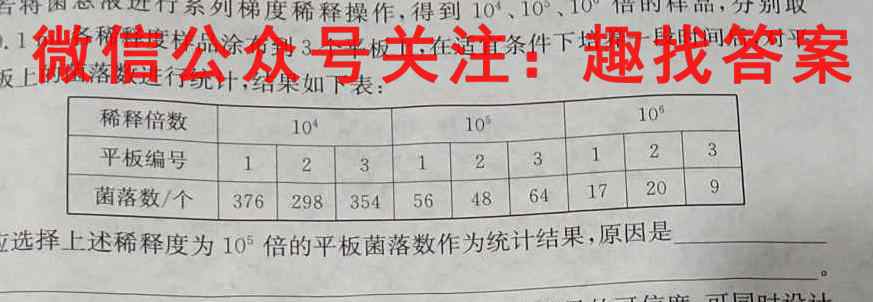 若将菌悬液进行系列梯度稀释操作,得到 10⁴、10⁵、10⁶ 倍的样品,分别取
各稀释度样品涂布到3个平板上,在适宜条件下培养一段时间后,对平
微信公众号关注:趣找答案
板上的菌落数进行统计,结果如下表:
稀释倍数 10⁴ 10⁵ 10⁶
平板编号 1 2 3 1 2 3 1 2 3
菌落数/个 376 298 354 56 48 64 17 20 9
应选择上述稀释度为 10⁵ 倍的平板菌落数作为统计结果,原因是
。
可信度,可同时设计